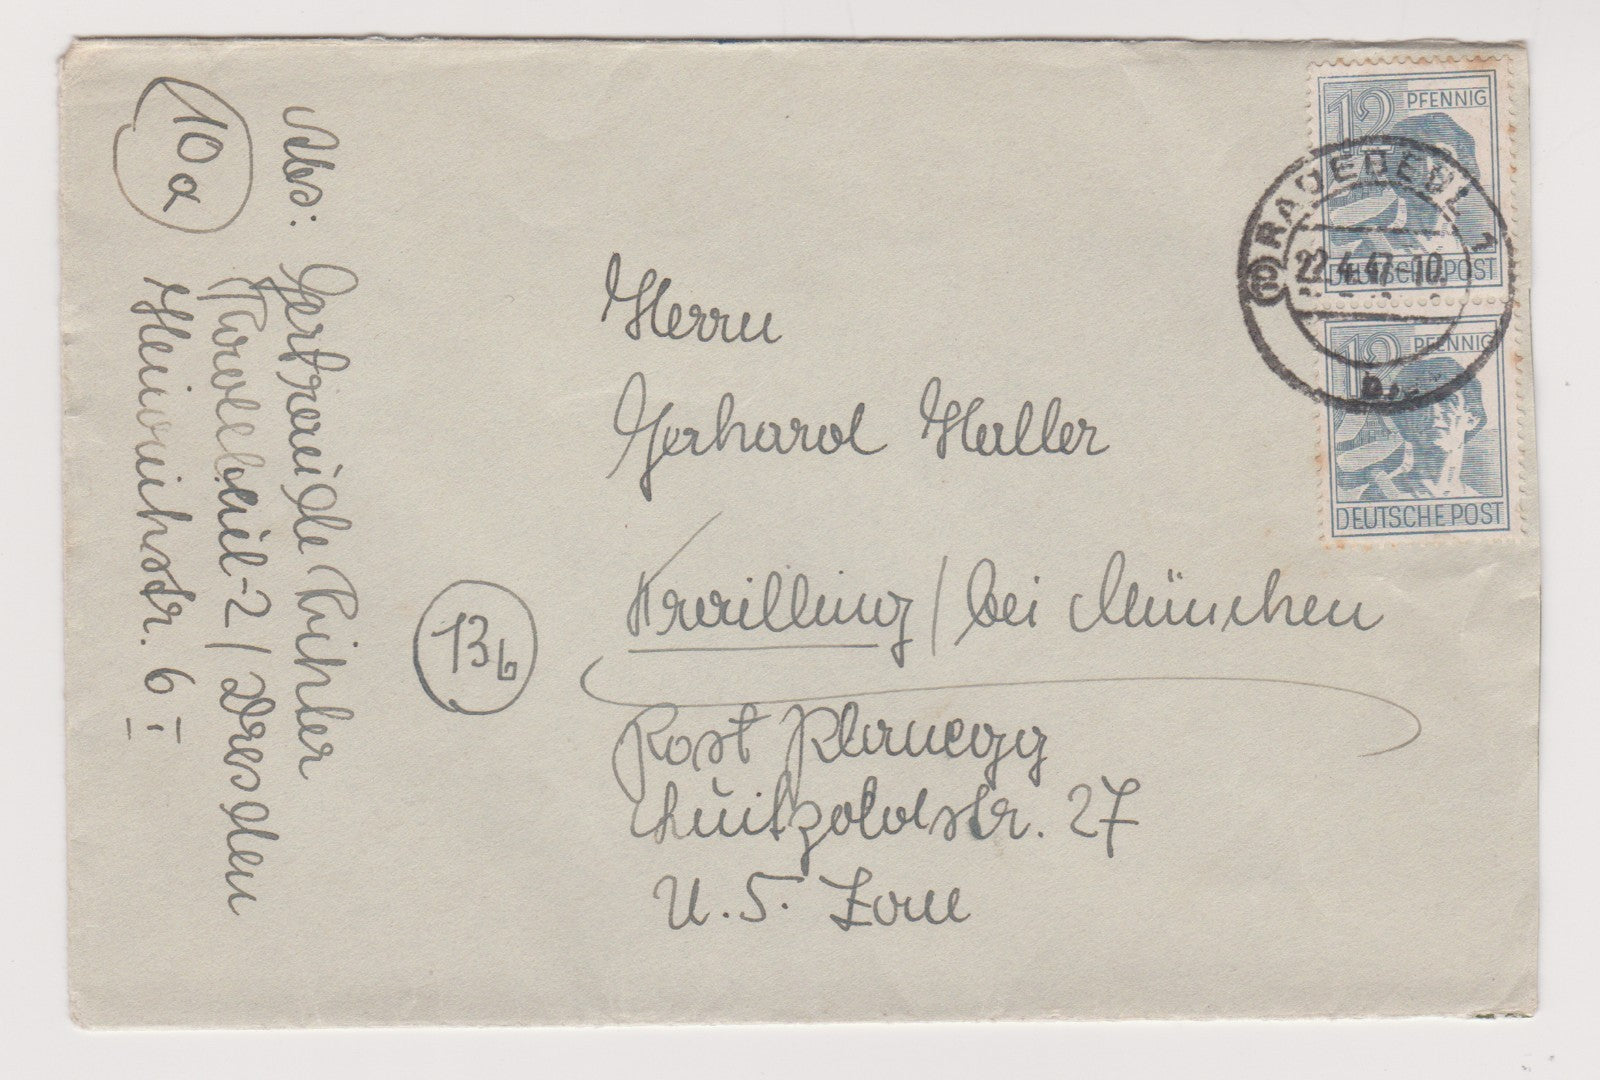 Abs: Gertraude Richler
Radebeul-2 / Dresden
Heinrichstr. 6
10a
Herrn
Gerhard Haller
Krailling / bei München
13b
Post Planegg
Luitpoldstr. 27
U. S. Zone
12 PFENNIG
DEUTSCHE POST
12 PFENNIG
DEUTSCHE POST
RADEBEUL 1
22.4.47-10